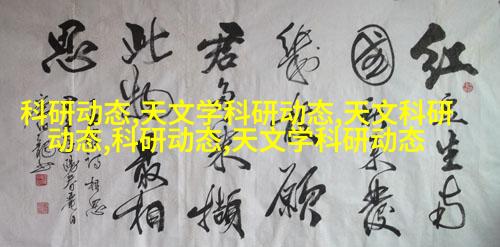 红豆生南
國秋来發
幾枝願
君多采擷
此物最相
思
科研动态,天文学科研动态,天文科研
动态,科研动态,天文学科研动态